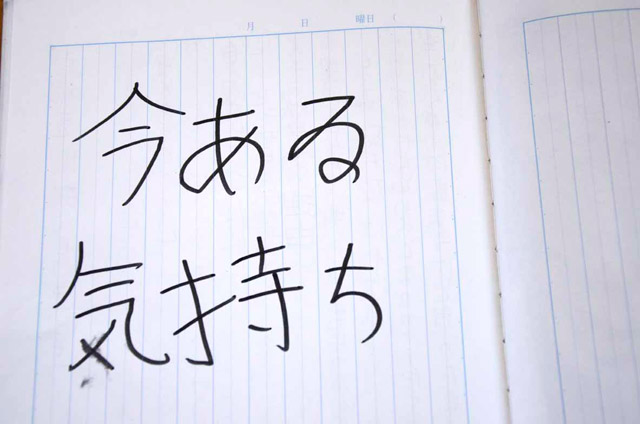 月 日 曜日 ( )
今ある
気持ち